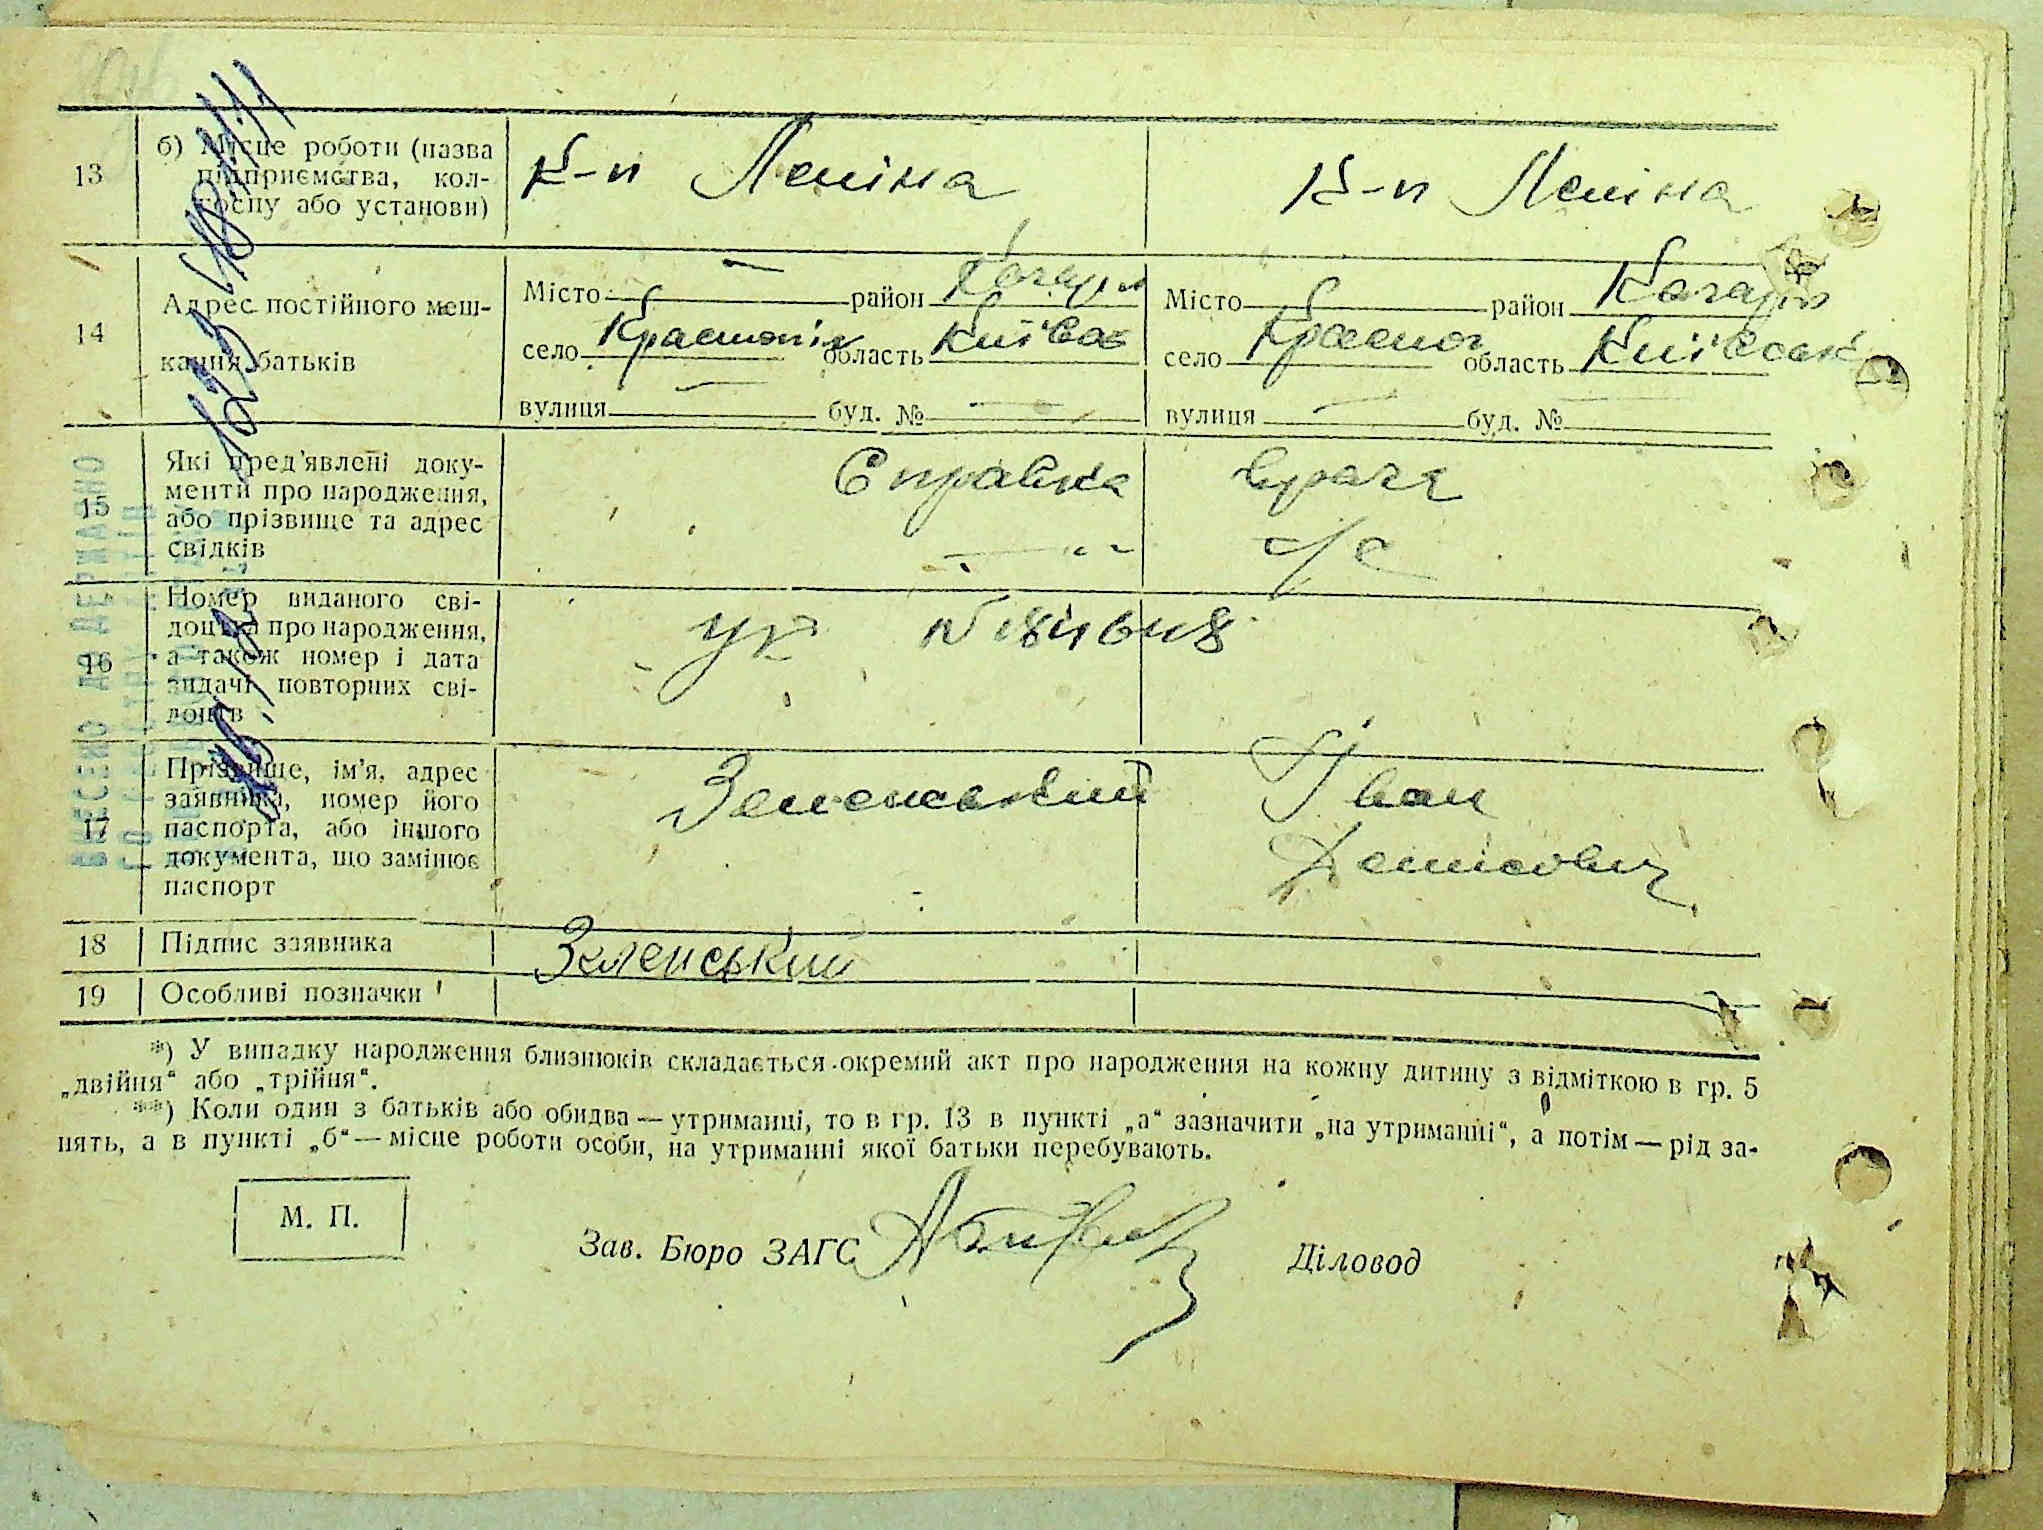 13
б) Місце роботи (назва
підприємства, кол-
госпу або установи)
К-п Леніна
К-п Леніна
14
Адрес постійного меш-
кання батьків
Місто — район Кагарл
село область Київсь
вулиця — буд. № —
Місто район Кагарл
село область Київськ
вулиця — буд. №
15
Які пред’явлені доку-
менти про народження,
або прізвище та адрес
свідків
Справка врача
— „ — с/с
16
Номер виданого сві-
доцтва про народження,
а також номер і дата
видачі повторних сві-
доцтв
УК №
17
Прізвище, ім’я, адрес
заявника, номер його
паспорта, або іншого
документа, що замінює
паспорт
Зеленський Іван
Денисович
18
Підпис заявника
Зеленський
19
Особливі позначки
ВНЕСЕНО ДО ДЕРЖАВНО
*) У випадку народження близнюків складається окремий акт про народження на кожну дитину з відміткою в гр. 5
„двійня“ або „трійня“.
**) Коли один з батьків або обидва — утриманці, то в гр. 13 в пункті „а“ зазначити „на утриманні“, а потім — рід за-
нять, а в пункті „б“ — місце роботи особи, на утриманні якої батьки перебувають.
М. П.
Зав. Бюро ЗАГС
Діловод